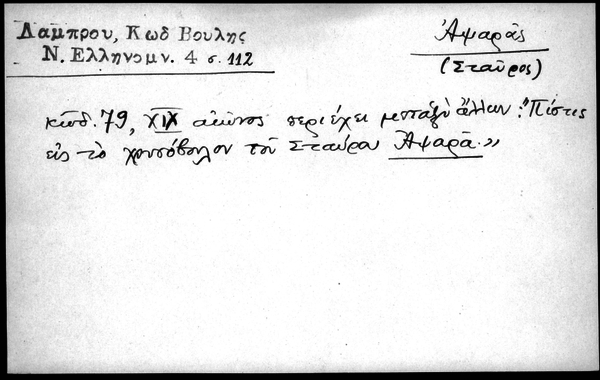 Λαμπρου, Κωδ Βουλης
Ν. Ελληνομν. 4 σ. 112
Ἀψαρᾶς
(Σταῦρος)
κῶδ. 79, XIX αἰῶνος περιέχει μεταξὺ ἄλλων: "Πίστις
εἰς τὸ χρυσόβουλον τοῦ Σταύρου Ἀψαρᾶ."